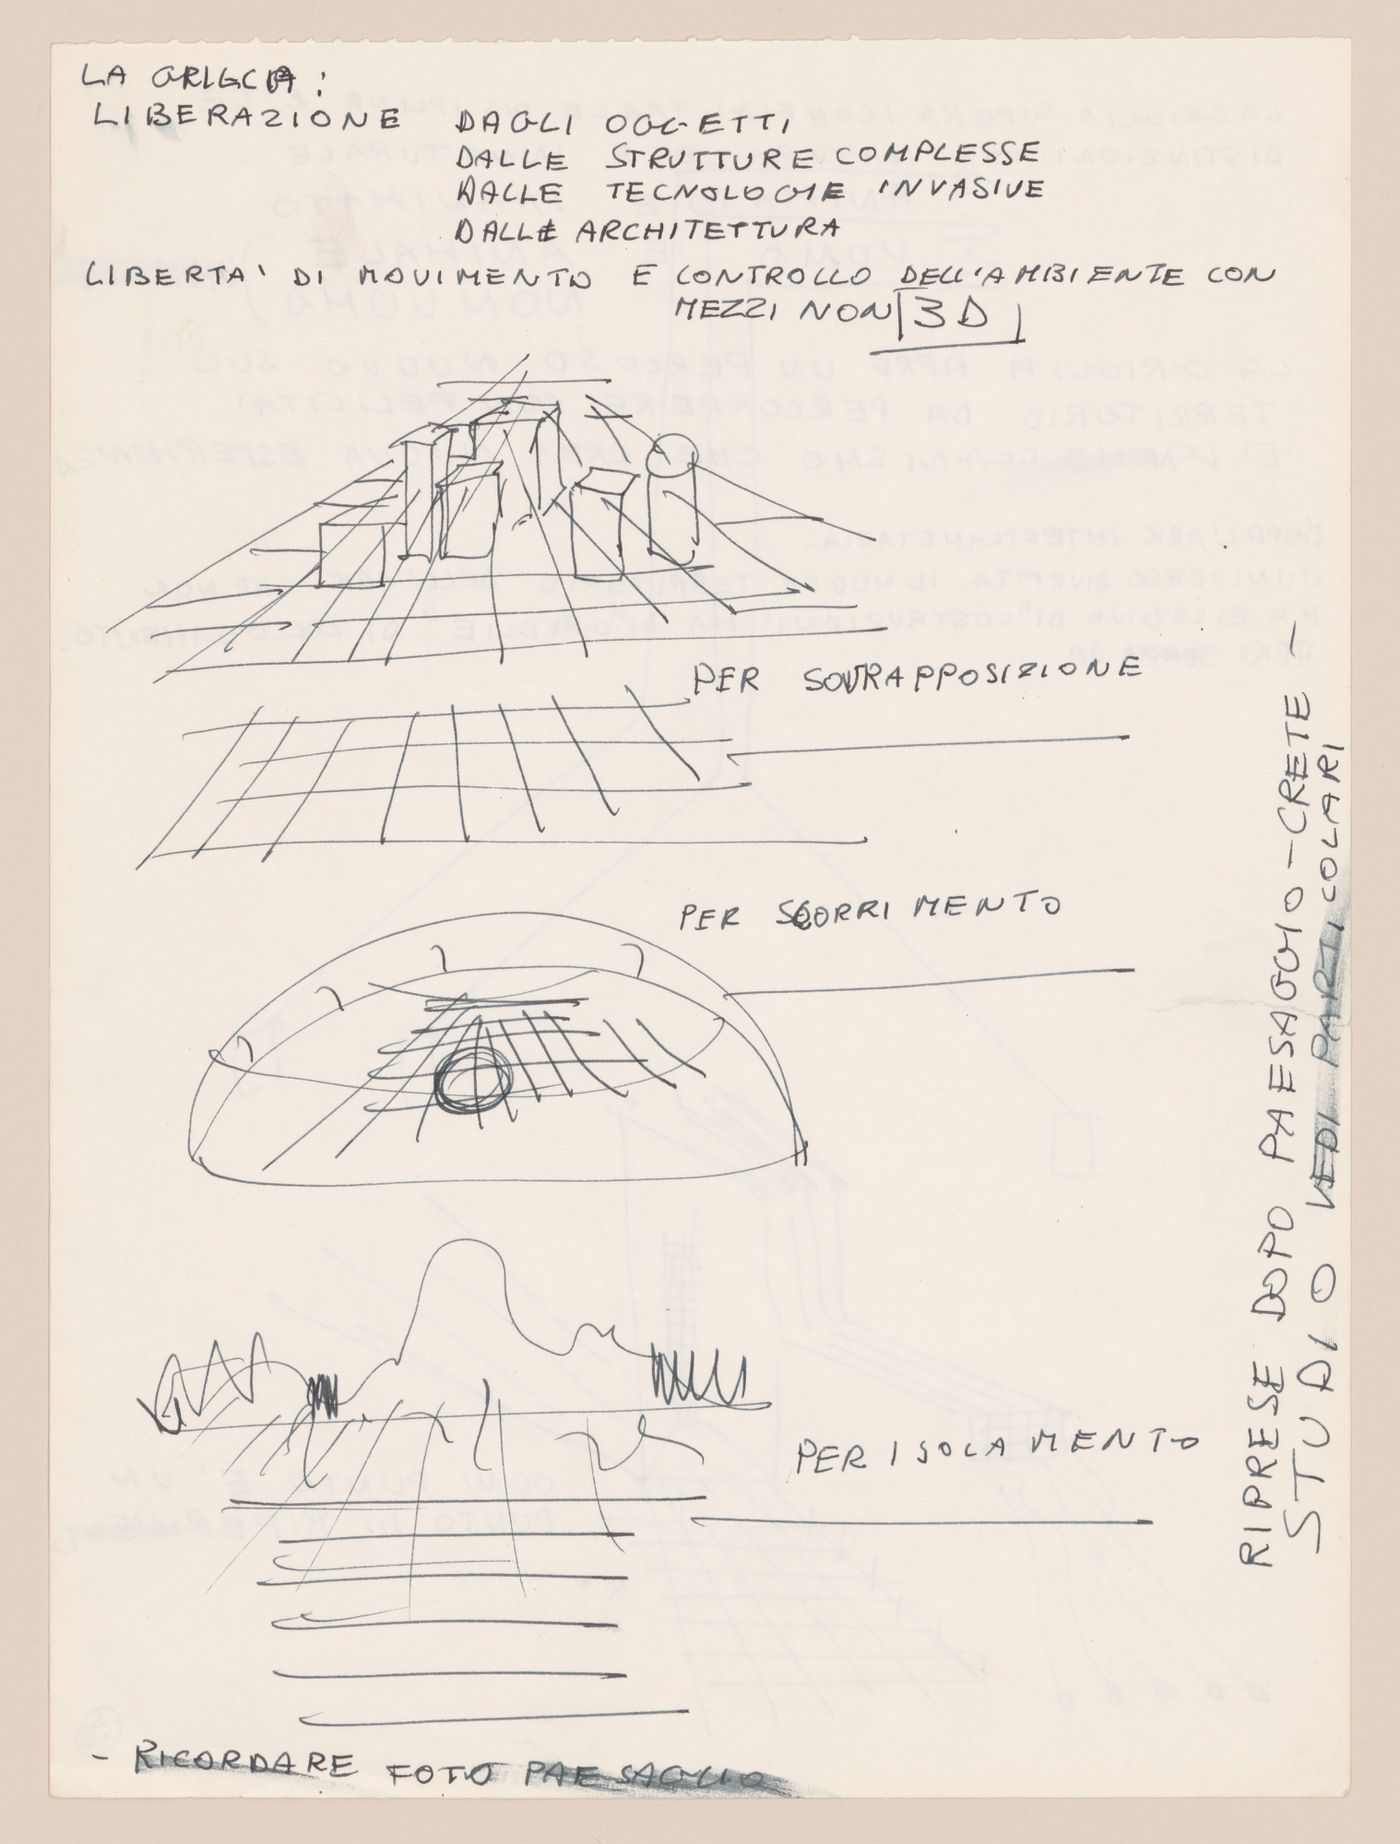 LA GRIGLIA:
LIBERAZIONE DAGLI OGGETTI
DALLE STRUTTURE COMPLESSE
DALLE TECNOLOGIE INVASIVE
DALLE ARCHITETTURA
LIBERTA' DI MOVIMENTO E CONTROLLO DELL'AMBIENTE CON
MEZZI NON 3D
PER SOVRAPPOSIZIONE
PER SCORRIMENTO
PER ISOLAMENTO
- RICORDARE FOTO PAESAGGIO
RIPRESE DOPO PAESAGGIO-CRETE -
STUDIO VEDI PARTICOLARI